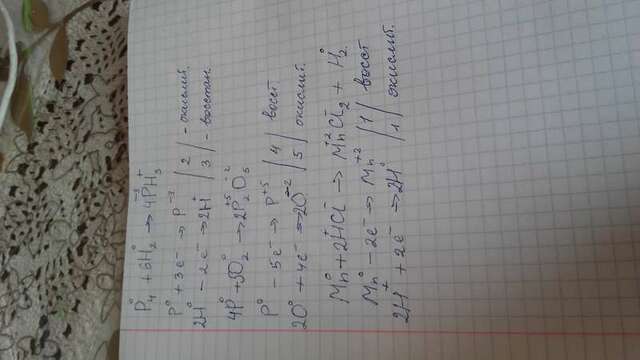 P₄⁰ + 6H₂⁰ → 4P⁻³H₃⁺
P⁰ + 3e⁻ → P⁻³ | 2 | - окислит.
2H⁰ - 2e⁻ → 2H⁺ | 3 | - восстан
4P⁰ + 5O₂⁰ → 2P₂⁺⁵O₅⁻²
P⁰ - 5e⁻ → P⁺⁵ | 4 | восст
2O⁰ + 4e⁻ → 2O⁻² | 5 | окислит.
Mn⁰ + 2H⁺Cl⁻ → Mn⁺²Cl₂⁻ + H₂⁰
Mn⁰ - 2e⁻ → Mn⁺² | 1 | восст
2H⁺ + 2e⁻ → 2H⁰ | 1 | окислит.